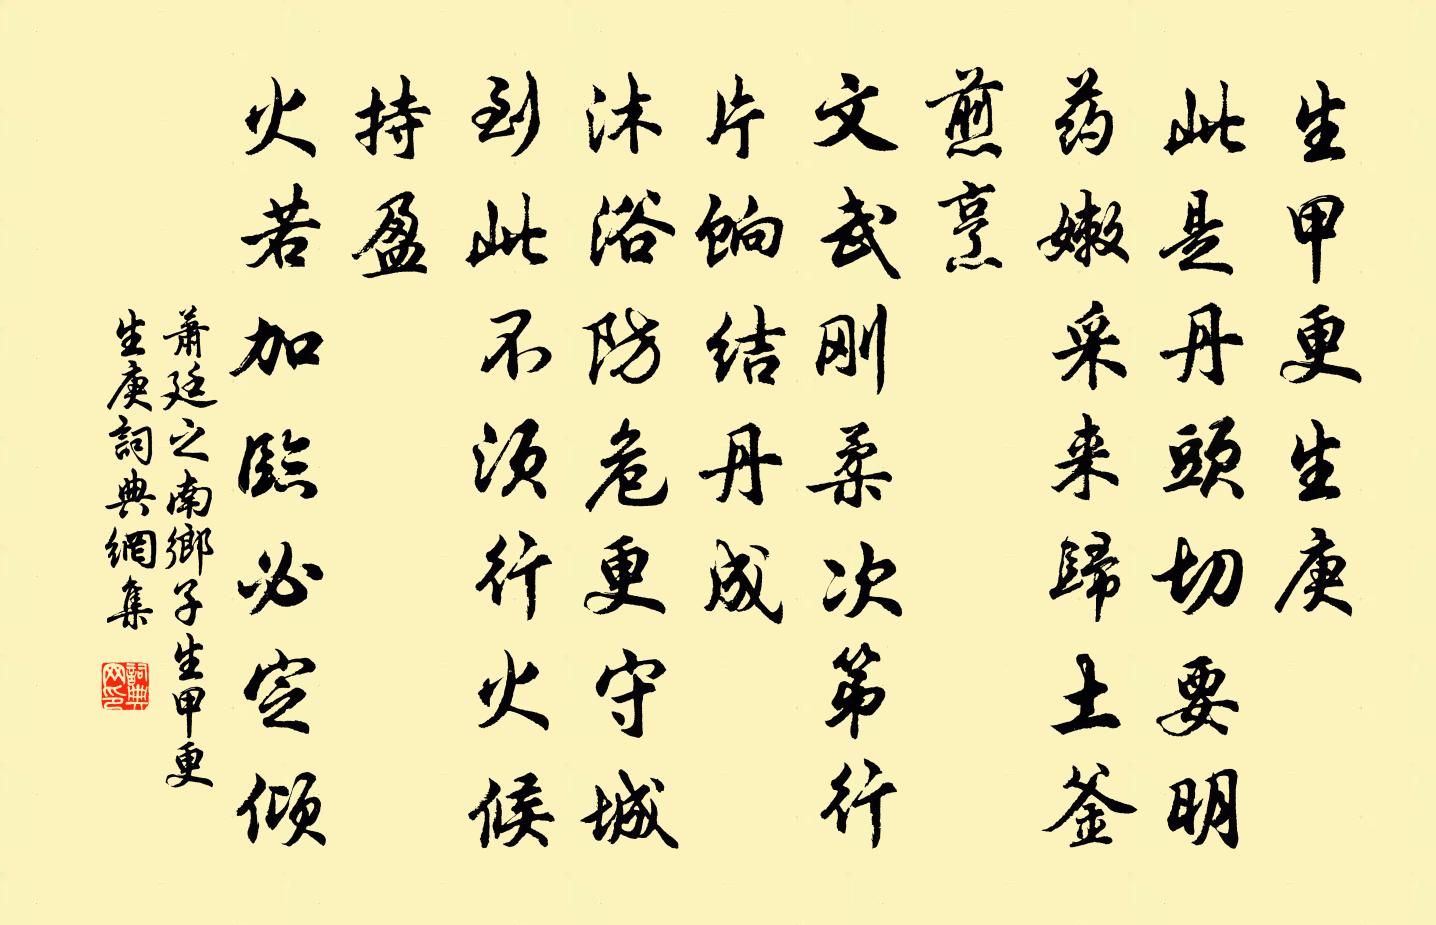 生甲更生庚
此是丹頭切要明
药嫩采来歸土釜
煎烹
文武刚柔次第行
片餉结丹成
沐浴防危更守城
到此不须行火候
持盈
火若加臨必定倾
蕭廷之南鄉子生甲更
生庚詞典網集
詞典
网印